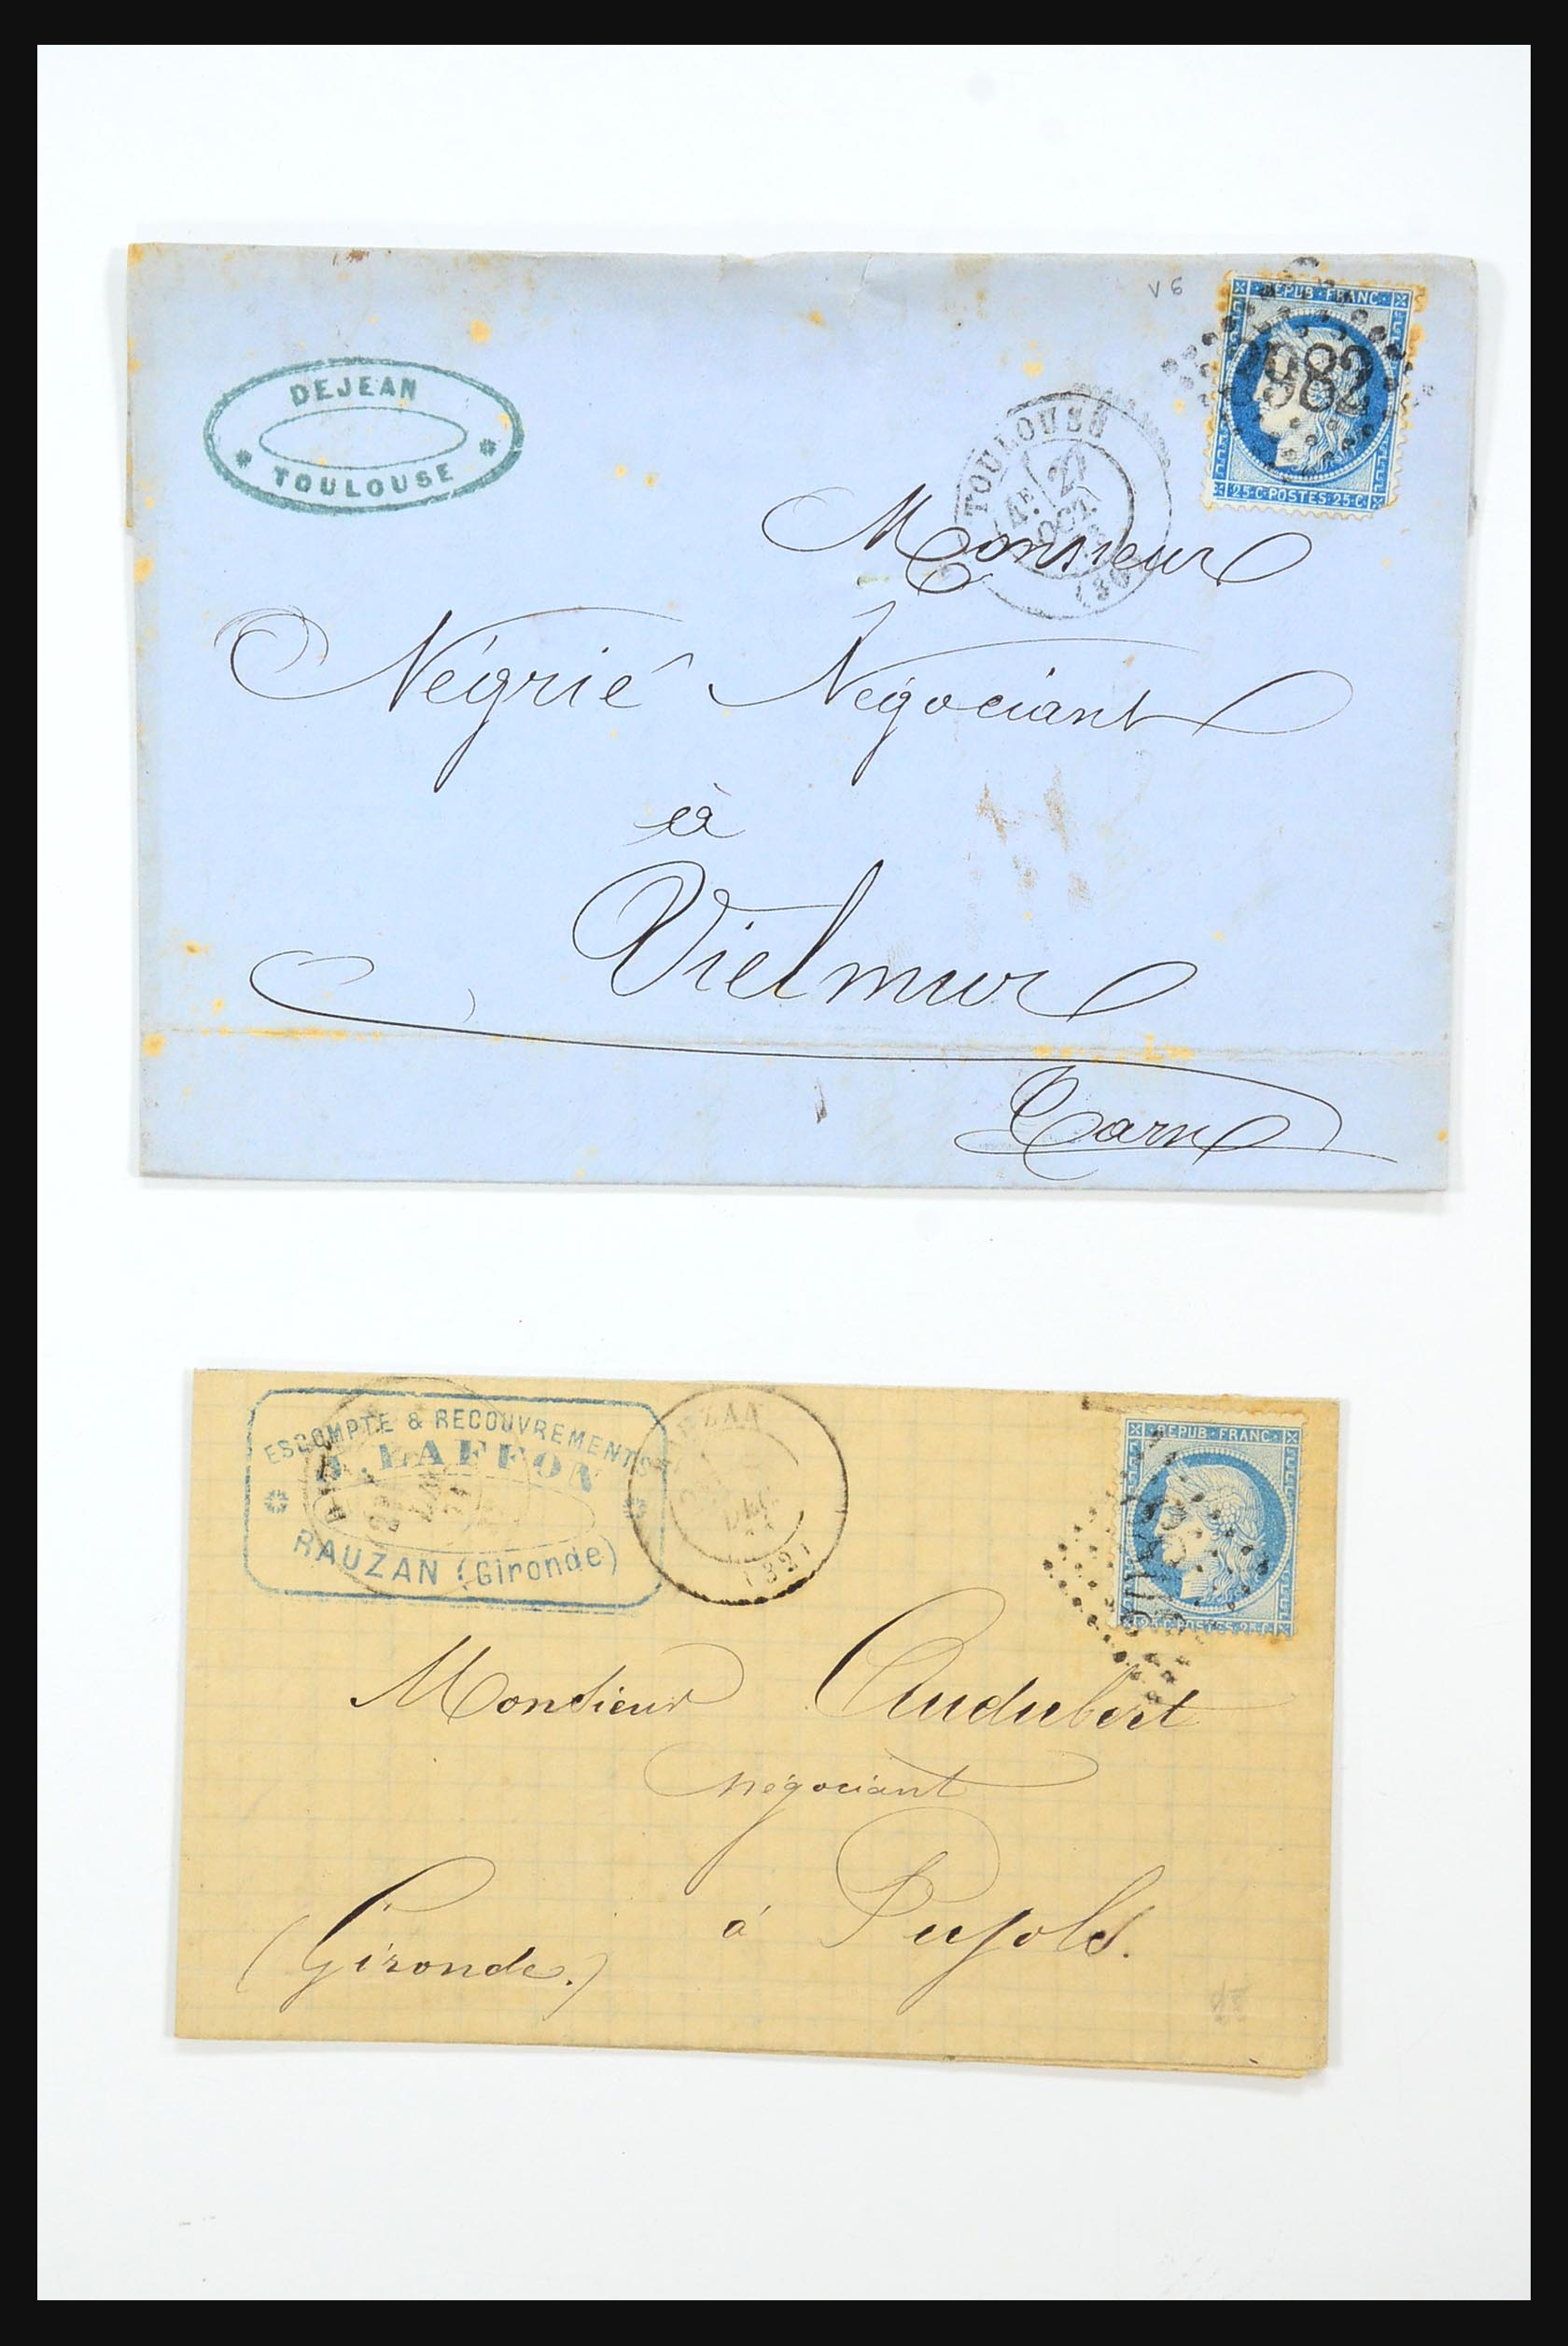 V 6
REPUB · FRANC
982
25·C·POSTES·25·C
DEJEAN
TOULOUSE
TOULOUSE
4E
27
OCT.
Monsieur
Négrié Négociant
à
Vielmur
Tarn
ESCOMPTE & RECOUVREMENTS
LAFFON
RAUZAN (Gironde)
DEC
(32)
REPUB · FRANC
25·C·POSTES·25·C
Monsieur Audubert
négociant
à Pujols.
(Gironde.)